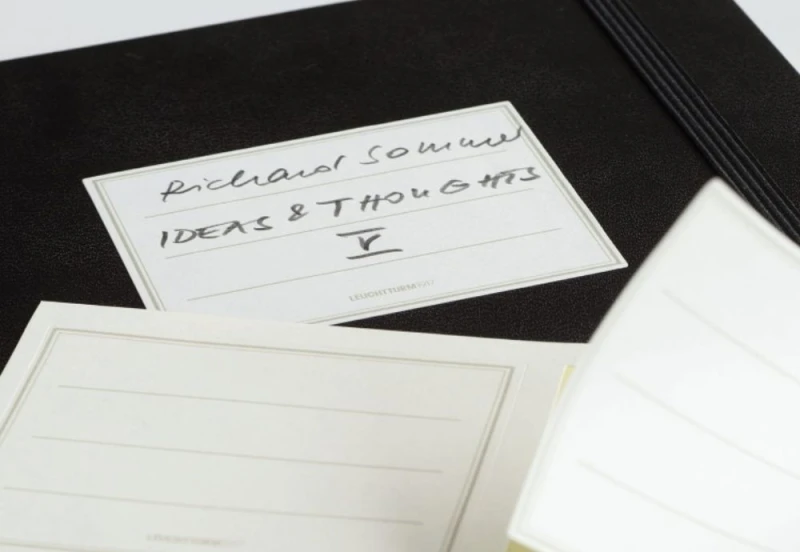 Richard Sommer
IDEAS & THOUGHTS
V
LEUCHTTURM1917
LEUCHTTURM